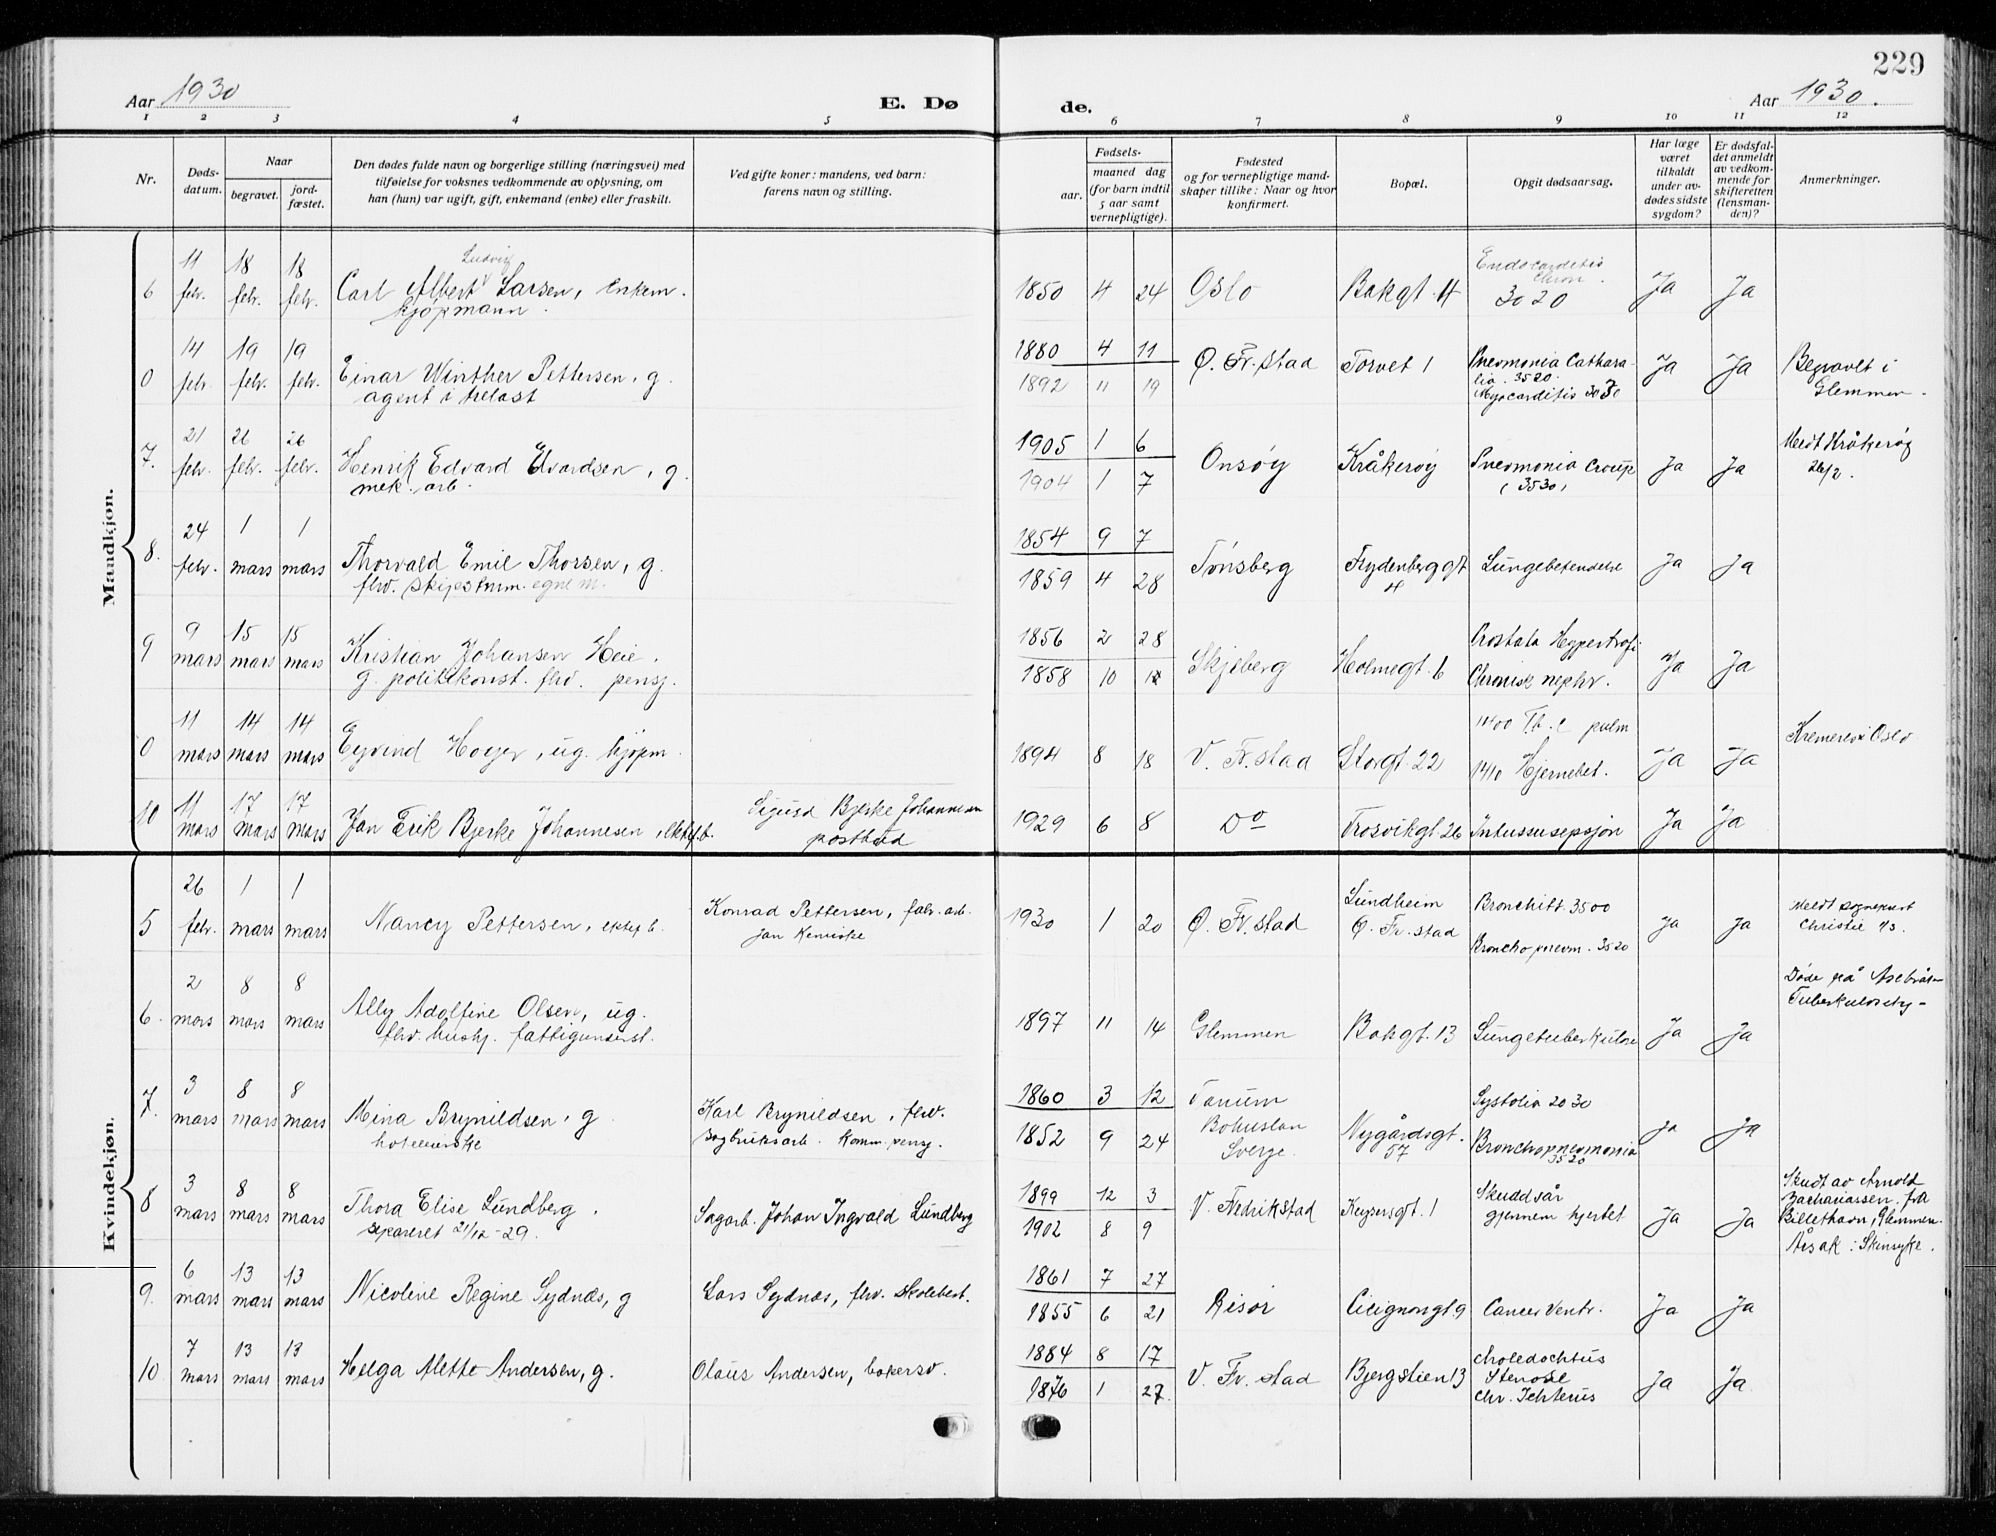 229
Aar 1930
E. Dø
de.
Aar 1930.
1 2 3 4 5 6 7 8 9 10 11 12
Nr.
Døds-
datum.
Naar
begravet.
jord-
fæstet.
Den dødes fulde navn og borgerlige stilling (næringsvei) med
tilføielse for voksnes vedkommende av oplysning, om
han (hun) var ugift, gift, enkemand (enke) eller fraskilt.
Ved gifte koner: mandens, ved barn:
farens navn og stilling.
Fødsels-
aar.
maaned dag
(for barn indtil
5 aar samt
vernepligtige).
Fødested
og for vernepligtige mand-
skaper tillike: Naar og hvor
konfirmert.
Bopæl.
Opgit dødsaarsag.
Har læge
været
tilkaldt
under av-
dødes sidste
sygdom?
Er dødsfal-
det anmeldt
av vedkom-
mende for
skifteretten
(lensman-
den)?
Anmerkninger.
Mandkjøn.
6 11 febr. 18 febr. 18 febr.
Ludvig
Carl Albert Larsen, Enkem.
kjøpmann.
1850 4 24 Oslo Bakgt. 4
Endocarditis
Chron.
3020
Ja Ja
0 14 febr. 19 febr. 19 febr.
Einar Winther Pettersen, g.
agent i trelast
1880 4 11
1892 11 19
Ø. Fr.stad Torvet 1
Pnevmonia Cathara-
lis. 3520.
Myocarditis 3030
Ja Ja
Begravet i
Glemmen.
7. 21 febr. 26 febr. 26 febr.
Henrik Edvard Evardsen, g.
mek. arb.
1905 1 6
1904 1 7
Onsøy Kråkerøy
Pnevmonia Croup
(3530)
Ja Ja
Meldt Kråkerøy
26/2.
8. 24 febr. 1 mars 1 mars
Thorvald Emil Thorsen, g.
fhv. skipstømm. egne m.
1854 9 7
1859 4 28
Tønsberg Frydenberggt
Lungebetendelse
Ja Ja
9 9 mars 15 mars 15 mars
Kristian Johansen Heie.
g. politikonst. fhv. pensj.
1856 2 28
1858 10
Skjeberg Holmegt. 6
Prostata Hypertrofi
Chronisk nephr.
Ja Ja
0 11 mars 14 mars 14 mars
Eyvind Hoyer, ug. kjøpm.
1894 8 18 V. Fr.stad Storgt. 22
1400 Tb. c pulm
1410 Hjernebet.
Ja Ja
Kremert i Oslo
10 11 mars 17 mars 17 mars
Jan Erik Bjerke Johannesen, ektef. b.
Sigurd Bjerke Johannesen
postbud
1929 6 8 Do Trosvikgt 26 Intussusepsjon
Ja Ja
Kvindekjøn.
5 26 febr. 1 mars 1 mars
Nancy Pettersen, ektef b.
Konrad Pettersen, fabr. arb.
Jan Kemiske
1930 1 20 Ø. Fr. stad
Lundheim
Ø. Fr. stad
Bronchitt. 3500
Bronchopnevm. 3520
Ja Ja
Meldt sogneprest
Christie 1/3.
6. 2 mars 8 mars 8 mars
Ally Adolfine Olsen, ug.
fhv. hushj. fattigunderst.
1897 11 14 Glemmen Bakgt. 13 Lungetuberkulose
Ja Ja
Døde på
Tuberkulosehj-
7. 3 mars 8 mars 8 mars
Mina Brynildsen, g
Karl Brynildsen, fhv.
sagbruksarb. komm. pensj.
1860 3 12
1852 9 24
Tanum
Bohuslän
Sverge.
Nygårdsgt.
57
Systolia 2030
Bronchopnevmonia
3520
ja ja
8 3 mars 8 mars 8 mars
Thora Elise Lundberg.
separeret 21/12-29.
Sagarb. Johan Ingvald Lundberg
1899 12 3
1902 8 9
V. Fredrikstad Keysersgt. 1
Skuddsår
gjennem hjertet
Ja Ja
Skudt av Arnold
Zachariassen fra
Billethavn, Glemmen.
Årsak: Skinsyke.
9. 6 mars 13 mars 13 mars
Nicoline Regine Sydnæs, g
Lars Sydnæs, fhv. Skolebest.
1861 7 27
1855 6 21
Risør Cicignongt. 9 Cancer Ventr.
Ja Ja
10 7 mars 13 mars 13 mars
Helga Mette Andersen, g.
Olaus Andersen, bakersv.
1884 8 17
1876 1 27
V. Fr. stad Bjergstien 13
Choledochtus
Stenose
Chr. Ichterus
Ja Ja